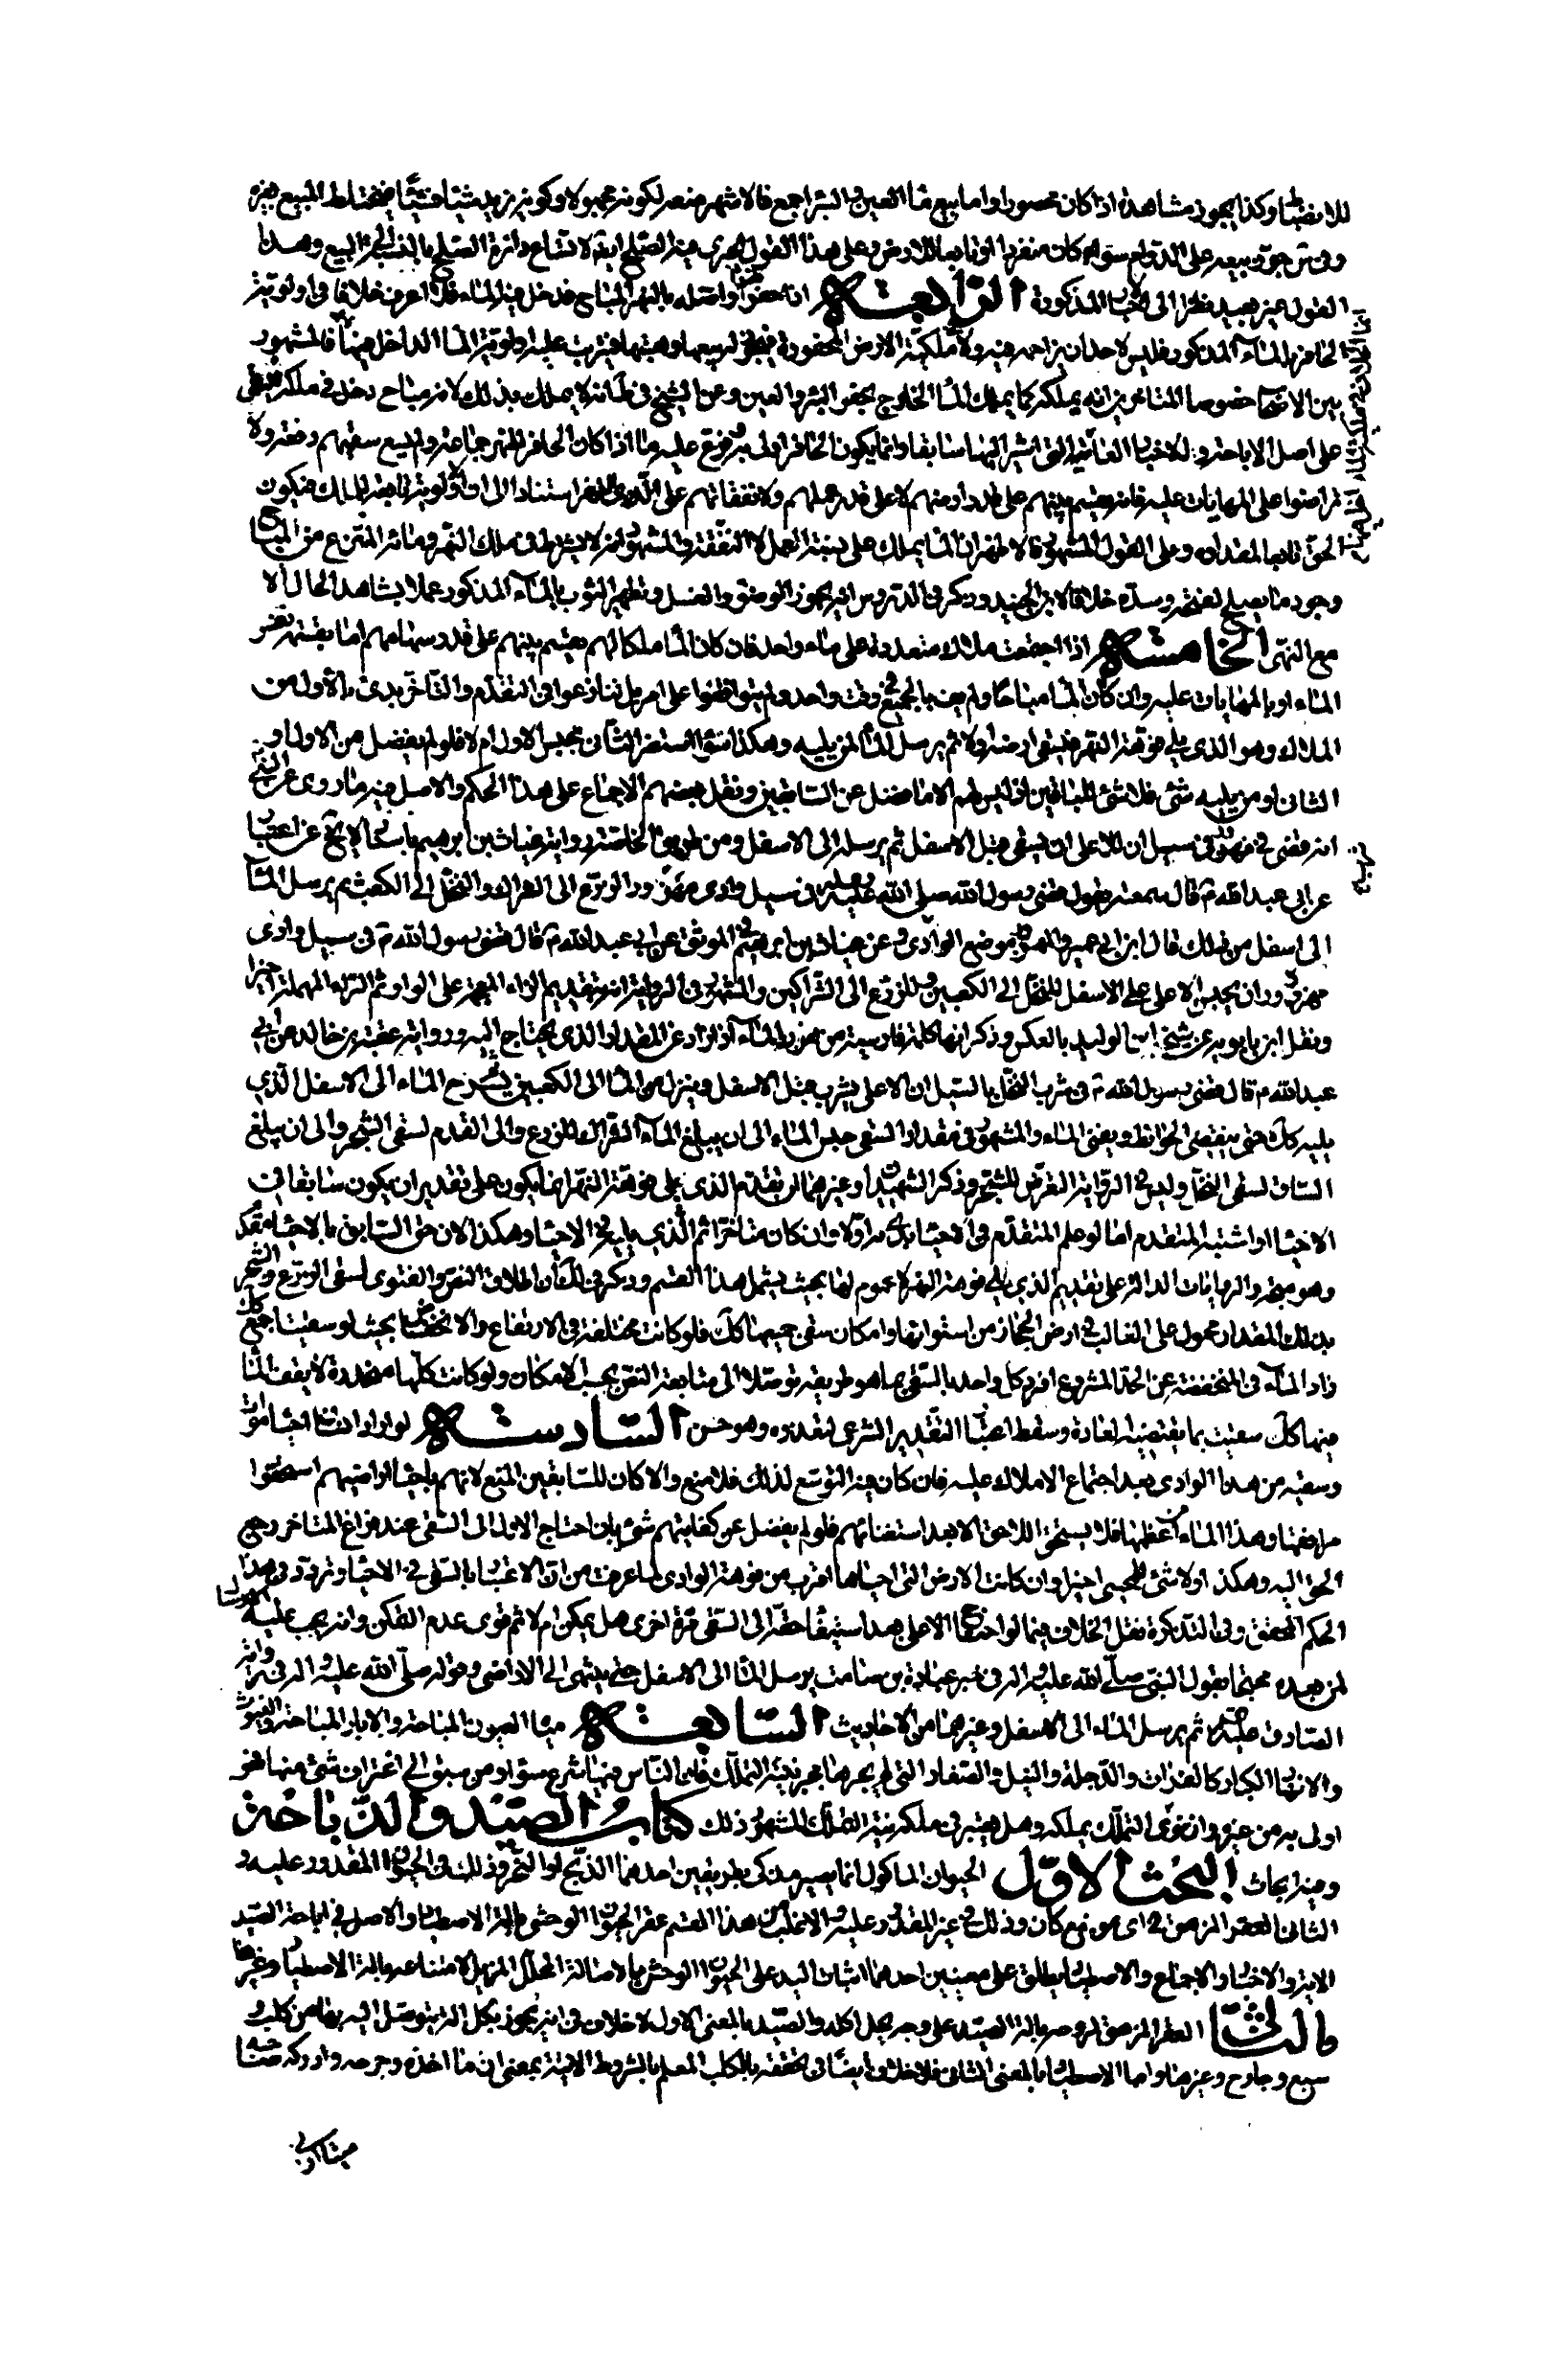 للانضباط وكذا يجوز مشاهدة اذا كان محصورا واما بيع ماء العين والبئر اجمع فالاشهر منعه لكونه مجهولا وكونه يزيد شيئا فشيئا فيختلط المبيع بغيره
وفى بيعه على الدوام سواء كان منفردا او تابعا للارض وعلى هذا القول يجرى فيه الصلح ايضا المبيع وهذا
القول غير بعيد نظرا الى الاخبار المذكورة الرابعة اذا حفر نهرا واوصله بالنهر المباح فدخل فيه الماء فلا اعرف خلافا فى اولوية
الحافر بالماء المذكور فليس لاحد ان يزاحمه فيه ولا ملكية الارض المحفورة فيجوز له بيعها وهبتها الماء الداخل فيها فالمشهور
بين الاصحاب خصوصا المتاخرين انه يملكه كما يملك الماء الخارج بحفر البئر والعين وعن الشيخ فى انه لا يملك بذلك لانه مباح دخل فى ملكه فيبقى
على اصل الاباحة وللاخبار العامية التى اشير اليها سابقا وانما يكون الحافر اولى به وفرع عليه ما اذا كان الحافر للنهر جماعة ولم يسع سقيهم دفعة ولا
تراضوا على المهايات عليه فانه يقسم بينهم على قدر ارضهم لا على قدر عملهم ولا نفقاتهم على النهر استنادا الى ان فيكون
الحق تابعا لمقداره وعلى القول المشهور فالاظهر ان الماء يملك على نسبة العمل لا النفقة والمشهور انه لا يشترط فى ملك النهر ومائه المنتزع من المباح
وجود ما يصلح لفتحه وسده خلافا لابن الجنيد وذكر فى الدروس انه يجوز الوضوء والغسل وتطهير الثوب بالماء المذكور عملا بشاهد الحال الا
مع النهى الخامسة اذا اجتمعت املاك متعددة على ماء واحد فان كان الماء ملكا لهم يقسم بينهم على قدر سهامهم اما بقسمة نفس
الماء او بالمهايات عليه وان كان الماء مباحا ولم يف بالجميع فى وقت واحد ولم يتواطئوا على امر بل تنازعوا فى التقدم والتاخر بدئ بالاول من
الملاك وهو الذى يلى فوهة النهر فيسقى ارضه اولا ثم يرسل الماء لمن يليه وهكذا سواء استضر الثانى بحبس الاول ام لا فلو لم يفضل من الاول او
الثانى او من يليه شئ فلا شئ للباقين اذ ليس لهم الا ما فضل عن السابقين ونقل بعضهم الاجماع على هذا الحكم والاصل فيه ما روى عن النبى
انه قضى فى سيل ان للاعلى ان يسقى قبل الاسفل ثم يرسله الى الاسفل ومن طريق الخاصة رواية غياث بن ابرهيم
عن ابى عبد الله ع قال سمعته يقول قضى رسول الله صلى الله عليه واله فى سيل وادى مهزور الزرع الى الشراك والنخل الى الكعب ثم يرسل الماء
الى اسفل من ذلك قال ابن ابى عمير والمهزور موضع الوادى وعن غياث بن ابرهيم فى الموثق عن ابى عبد الله ع قال قضى رسول الله ص فى سيل وادى
مهزور ان يحبس الاعلى على الاسفل للنخل الى الكعبين وللزرع الى الشراكين والمشهور فى الرواية انه بتقديم الزاء المعجمة على الواو ثم الراء المهملة اخيرا
ونقل ابن بابويه عن شيخه ابن الوليد بالعكس وذكر انها كلمة فارسية من هرز الماء اذا زاد عن المقدار الذى يحتاج اليه ورواية عقبة بن خالد عن ابى
عبد الله ع قال قضى رسول الله ص فى شرب النخل بالسيل ان الاعلى يشرب قبل الاسفل ويترك من الماء الى الكعبين ثم يسرح الماء الى الاسفل الذى
يليه كك حتى ينقضى الحوائط ويفنى الماء والمشهور فى مقدار السقى حبس الماء الى ان يبلغ الماء الشراك للزرع والى القدم لسقى الشجر والى ان يبلغ
الساق لسقى النخل وليس فى الرواية التعرض للشجر وذكر الشهيد وغيره ان تقديم الذى يلى فوهة النهر انما يكون على تقدير ان يكون سابقا فى
الاحياء او اشتبه المتقدم اما لو علم المتقدم فى الاحياء بدئ به اولا وان كان متاخرا ثم الذى يليه فى الاحياء وهكذا لان حق السابق بالاحياء مقدم
وهو متجه والروايات الدالة على تقديم الذى يلى فوهة النهر لا عموم لها بحيث يشمل هذا القسم وذكر فى لك ان اطلاق النص والفتوى لسقى الزرع والشجر
بذلك المقدار محمول على الغالب فى ارض الحجاز من استوائها وامكان سقى جميعها كك فلو كانت مختلفة فى الارتفاع والانخفاض بحيث لو سقيت اجمع كك
زاد الماء فى المنخفضة عن الحد المشروع افرد كل واحد بالسقى بما هو طريقه توصلا الى متابعة النص بحسب الامكان ولو كانت كلها منحدرة لا يقف الماء
فيها كك سقيت بما يقتضيه العادة وسقط اعتبار التقدير الشرعى لتعذره وهو حسن السادسة لو اراد انسان احياء موات
وسقيه من هذا الوادى بعد اجتماع الاملاك عليه فان كان فيه التوسع لذلك فلا منع والا كان للسابقين المنع لانهم باحياء اراضيهم استحقوا
مرافقها وهذا الماء من اعظمها فلا يستحق اللاحق الا بعد استغنائهم فلو لم يفضل عن كفايتهم شئ بان احتاج الاول الى السقى عند فراغ المتاخر رجع
الحق اليه وهكذا ولا شئ للمحيى اخيرا وان كانت الارض التى احياها اقرب من فوهة الوادى لما عرفت من ان الاعتبار بالسبق فى الاحياء وتردد فى هذا
الحكم المحقق وفى التذكرة نقل الخلاف فيما لو احتاج الاعلى بعد استيفاء حقه الى السقى مرة اخرى هل يمكن ام لا ثم قوى عدم التمكن وانه يجب عليه الارسال
لمن بعده محتجا بقول النبى صلى الله عليه واله فى خبر عبادة بن صامت يرسل الماء الى الاسفل حتى ينتهى الى الاراضى وقوله صلى الله عليه واله فى رواية
الصادق عليه السلام ثم يرسل الماء الى الاسفل وغيرهما من الاحاديث السابعة مياه العيون المباحة والابار المباحة والغيوث
والانهار الكبار كالفرات والدجلة والنيل والصغار التى لم يجرها مجر بنية التملك فان الناس فيها شرع سواء ومن سبق الى اغتراف شئ منها فهو
اولى به من غيره وان نوى التملك يملكه وهل يعتبر فى ملكه نية التملك المشهور ذلك كتاب الصيد والذباحة
وفيه ابحاث البحث الاول الحيوان الماكول انما يصير مذكى بطريقين احدهما الذبح او النحر وذلك فى الحيوان المقدور عليه و
الثانى العقر المزهق فى اى موضع كان وذلك فى غير المقدور عليه والاغلب من هذا القسم عقر الحيوان الوحشى بالة الاصطياد والاصل فى اباحة الصيد
الاية والاخبار والاجماع والاصطياد يطلق على معنيين احدهما اثبات اليد على الحيوان الوحشى بالاصالة المحلل المزيل لامتناعه بالة الاصطياد وغيرها
والثانى العقر المزهق لروحه بالة الصيد على وجه يحل اكله والصيد بالمعنى الاول لا خلاف فى انه يجوز بكل الة يتوصل اليه بها من كلب و
سبع وجارح وغيرها واما الاصطياد بالمعنى الثانى فلا خلاف ايضا فى تحققه بالكلب المعلم بالشروط الاتية بمعنى ان ما اخذه وجرحه وادركه صاحبه
ميتا